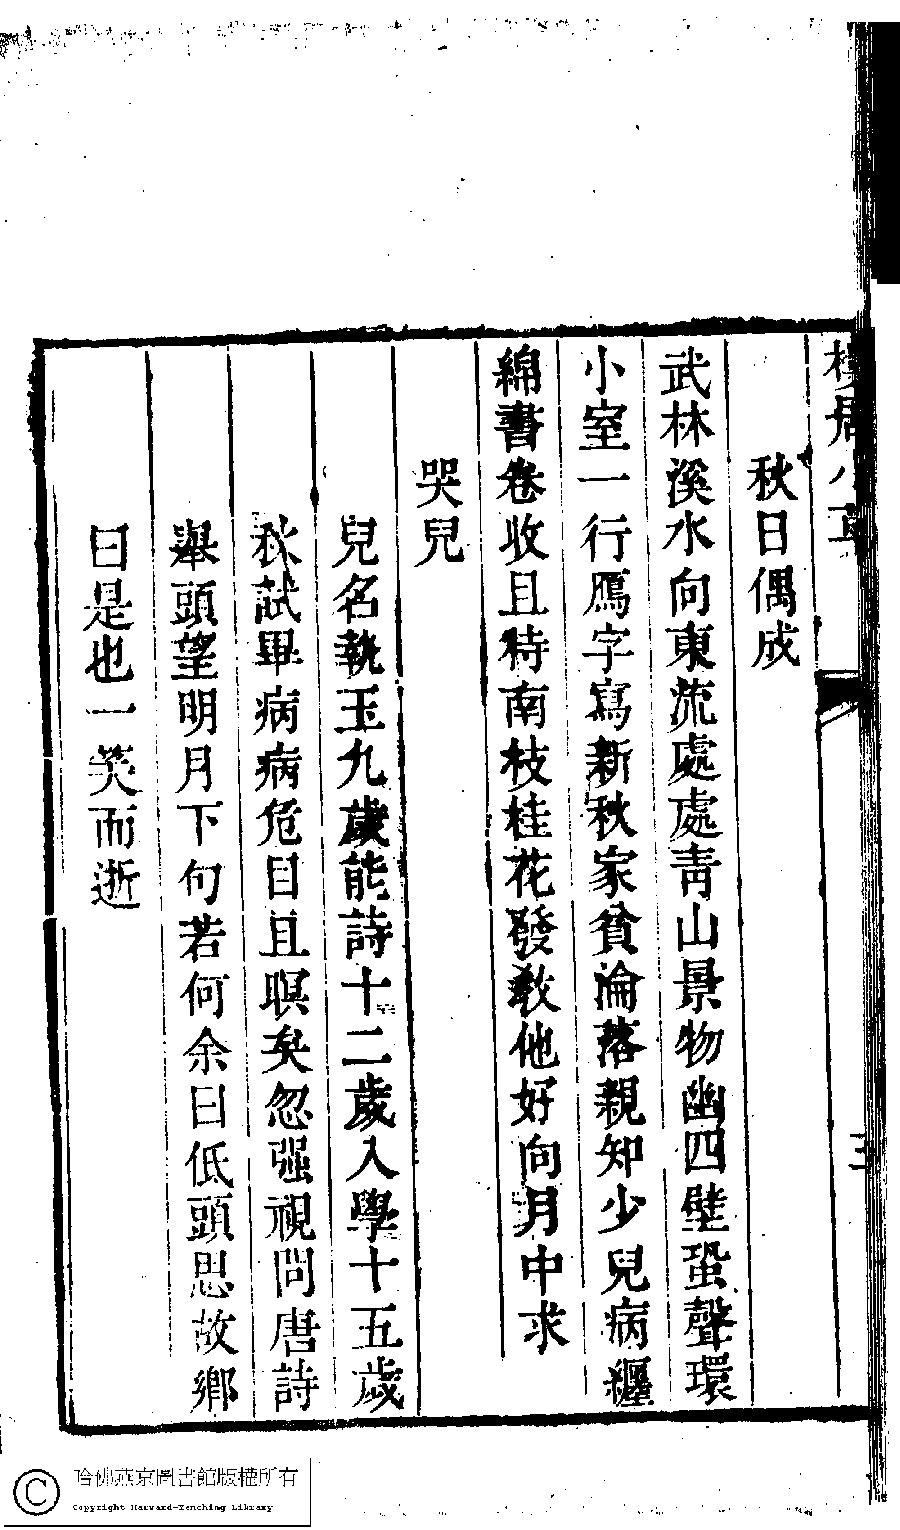 樓居小草
三
秋日偶成
武林溪水向東流處處青山景物幽四壁蛩聲環
小室一行鴈字寫新秋家貧淪落親知少兒病纏
綿書卷收且待南枝桂花發教他好向月中求
哭兒
兒名執玉九歲能詩十二歲入學十五歲
秋試畢病病危目且瞑矣忽强視問唐詩
舉頭望明月下句若何余曰低頭思故鄉
曰是也一笑而逝
哈佛燕京圖書館版權所有
Copyright Harvard-Yenching Library